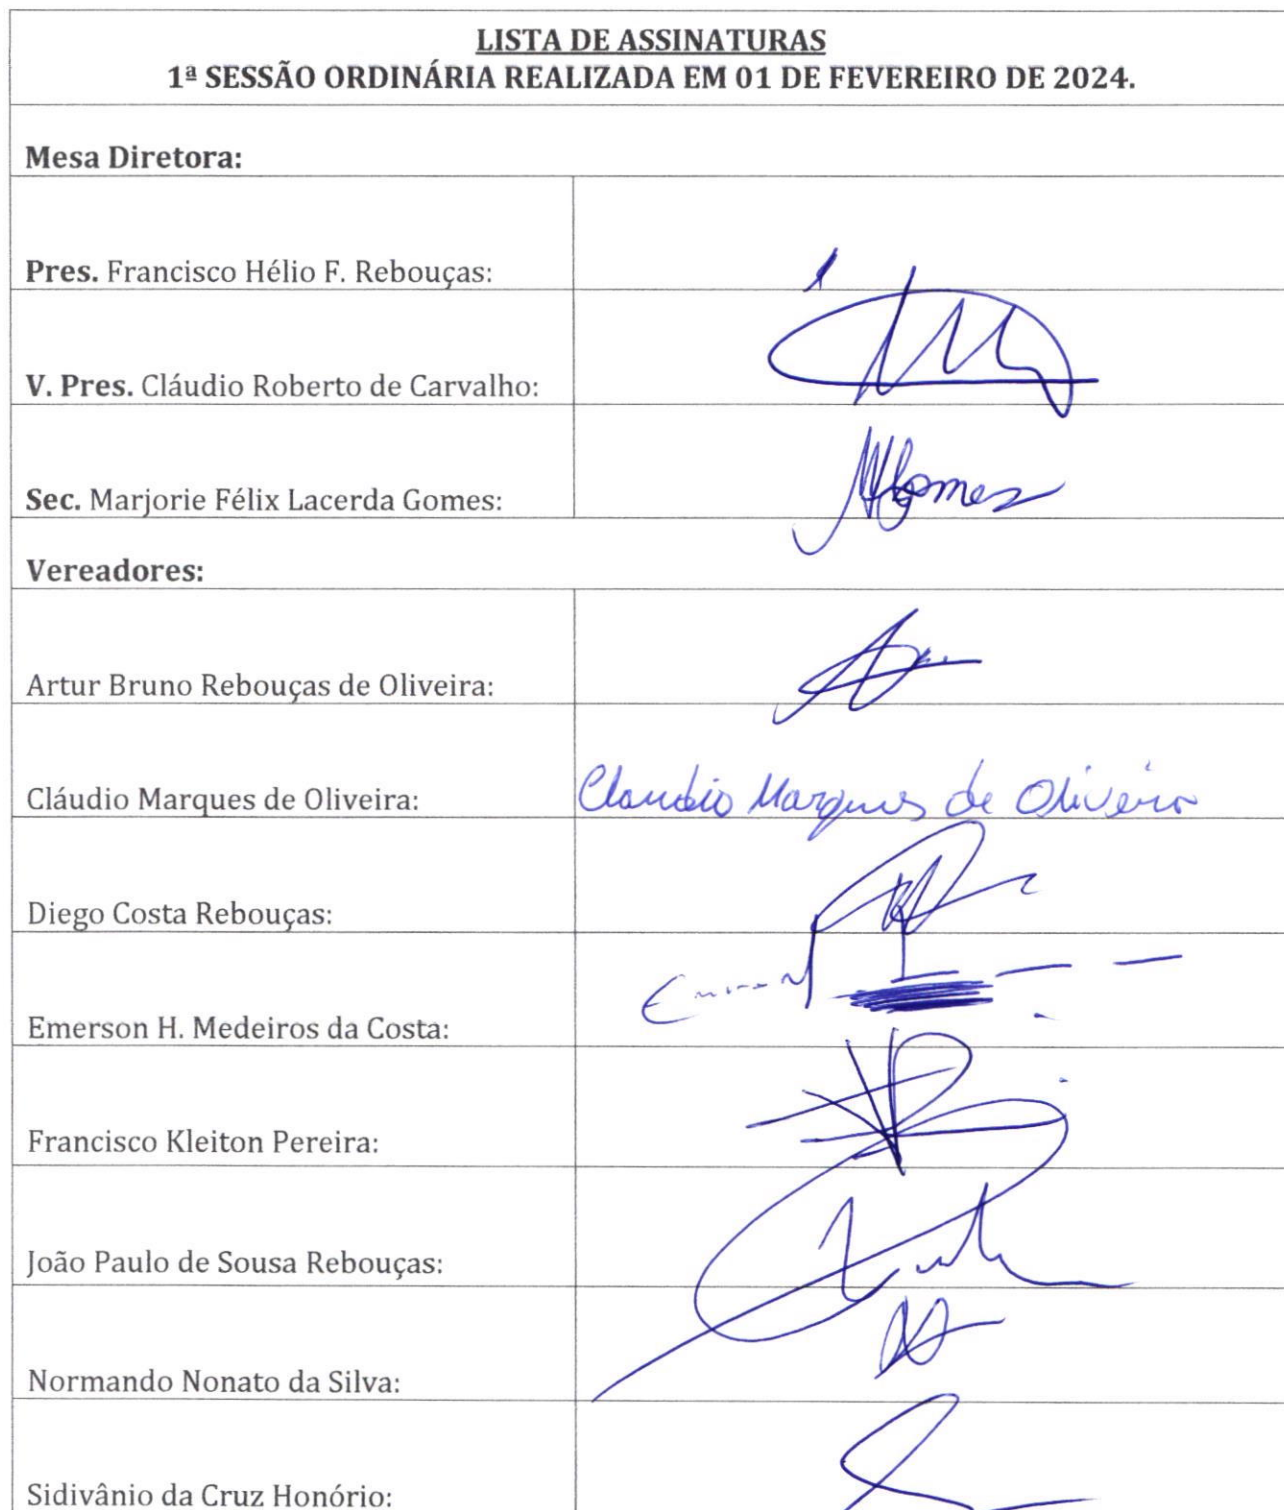 LISTA DE ASSINATURAS
1ª SESSÃO ORDINÁRIA REALIZADA EM 01 DE FEVEREIRO DE 2024.
Mesa Diretora:
Pres. Francisco Hélio F. Rebouças:
V. Pres. Cláudio Roberto de Carvalho:
Sec. Marjorie Félix Lacerda Gomes: MFGomes
Vereadores:
Artur Bruno Rebouças de Oliveira:
Cláudio Marques de Oliveira: Claudio Marques de Oliveira
Diego Costa Rebouças:
Emerson H. Medeiros da Costa:
Francisco Kleiton Pereira:
João Paulo de Sousa Rebouças:
Normando Nonato da Silva:
Sidivânio da Cruz Honório: